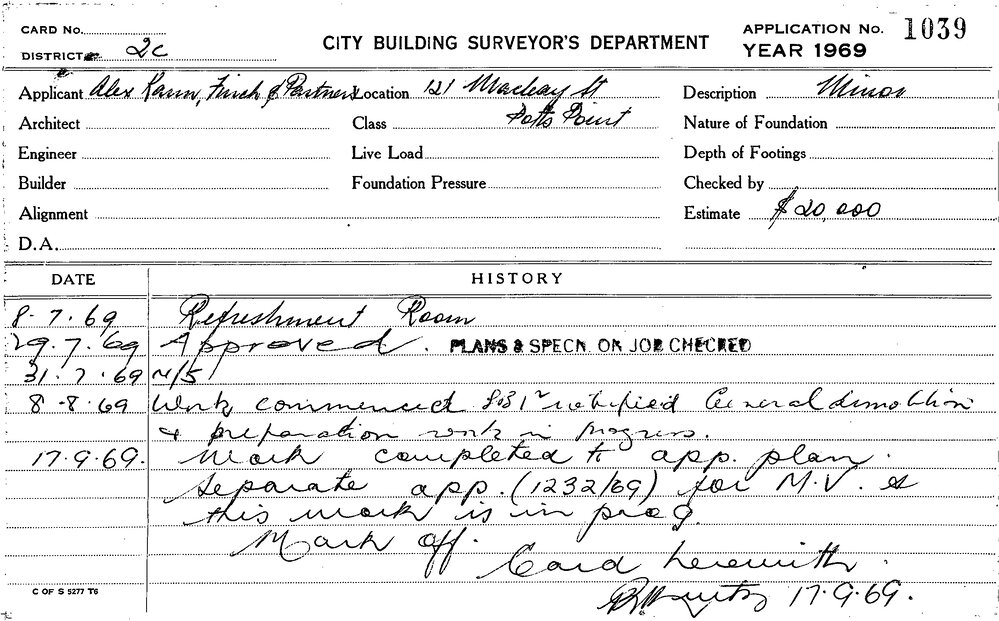 CARD No.
DISTRICT 2c
CITY BUILDING SURVEYOR'S DEPARTMENT
APPLICATION No. 1039
YEAR 1969
Applicant Alex Kann, Finch & Partners Location 121 Macleay St Description Minor
Architect Class Potts Point Nature of Foundation
Engineer Live Load Depth of Footings
Builder Foundation Pressure Checked by
Alignment Estimate $20,000
D.A.
DATE HISTORY
8.7.69 Refreshment Room
29.7.69 Approved. PLANS & SPECN. ON JOB CHECKED
31.7.69 N/S
8.8.69 Work commenced General demolition
& preparation work in progress.
17.9.69. Work completed to app. plan.
Separate app. (1232/69) for M.V. &
this work is in prog.
Mark off.
Card herewith.
17.9.69.
C OF S 5277 T6